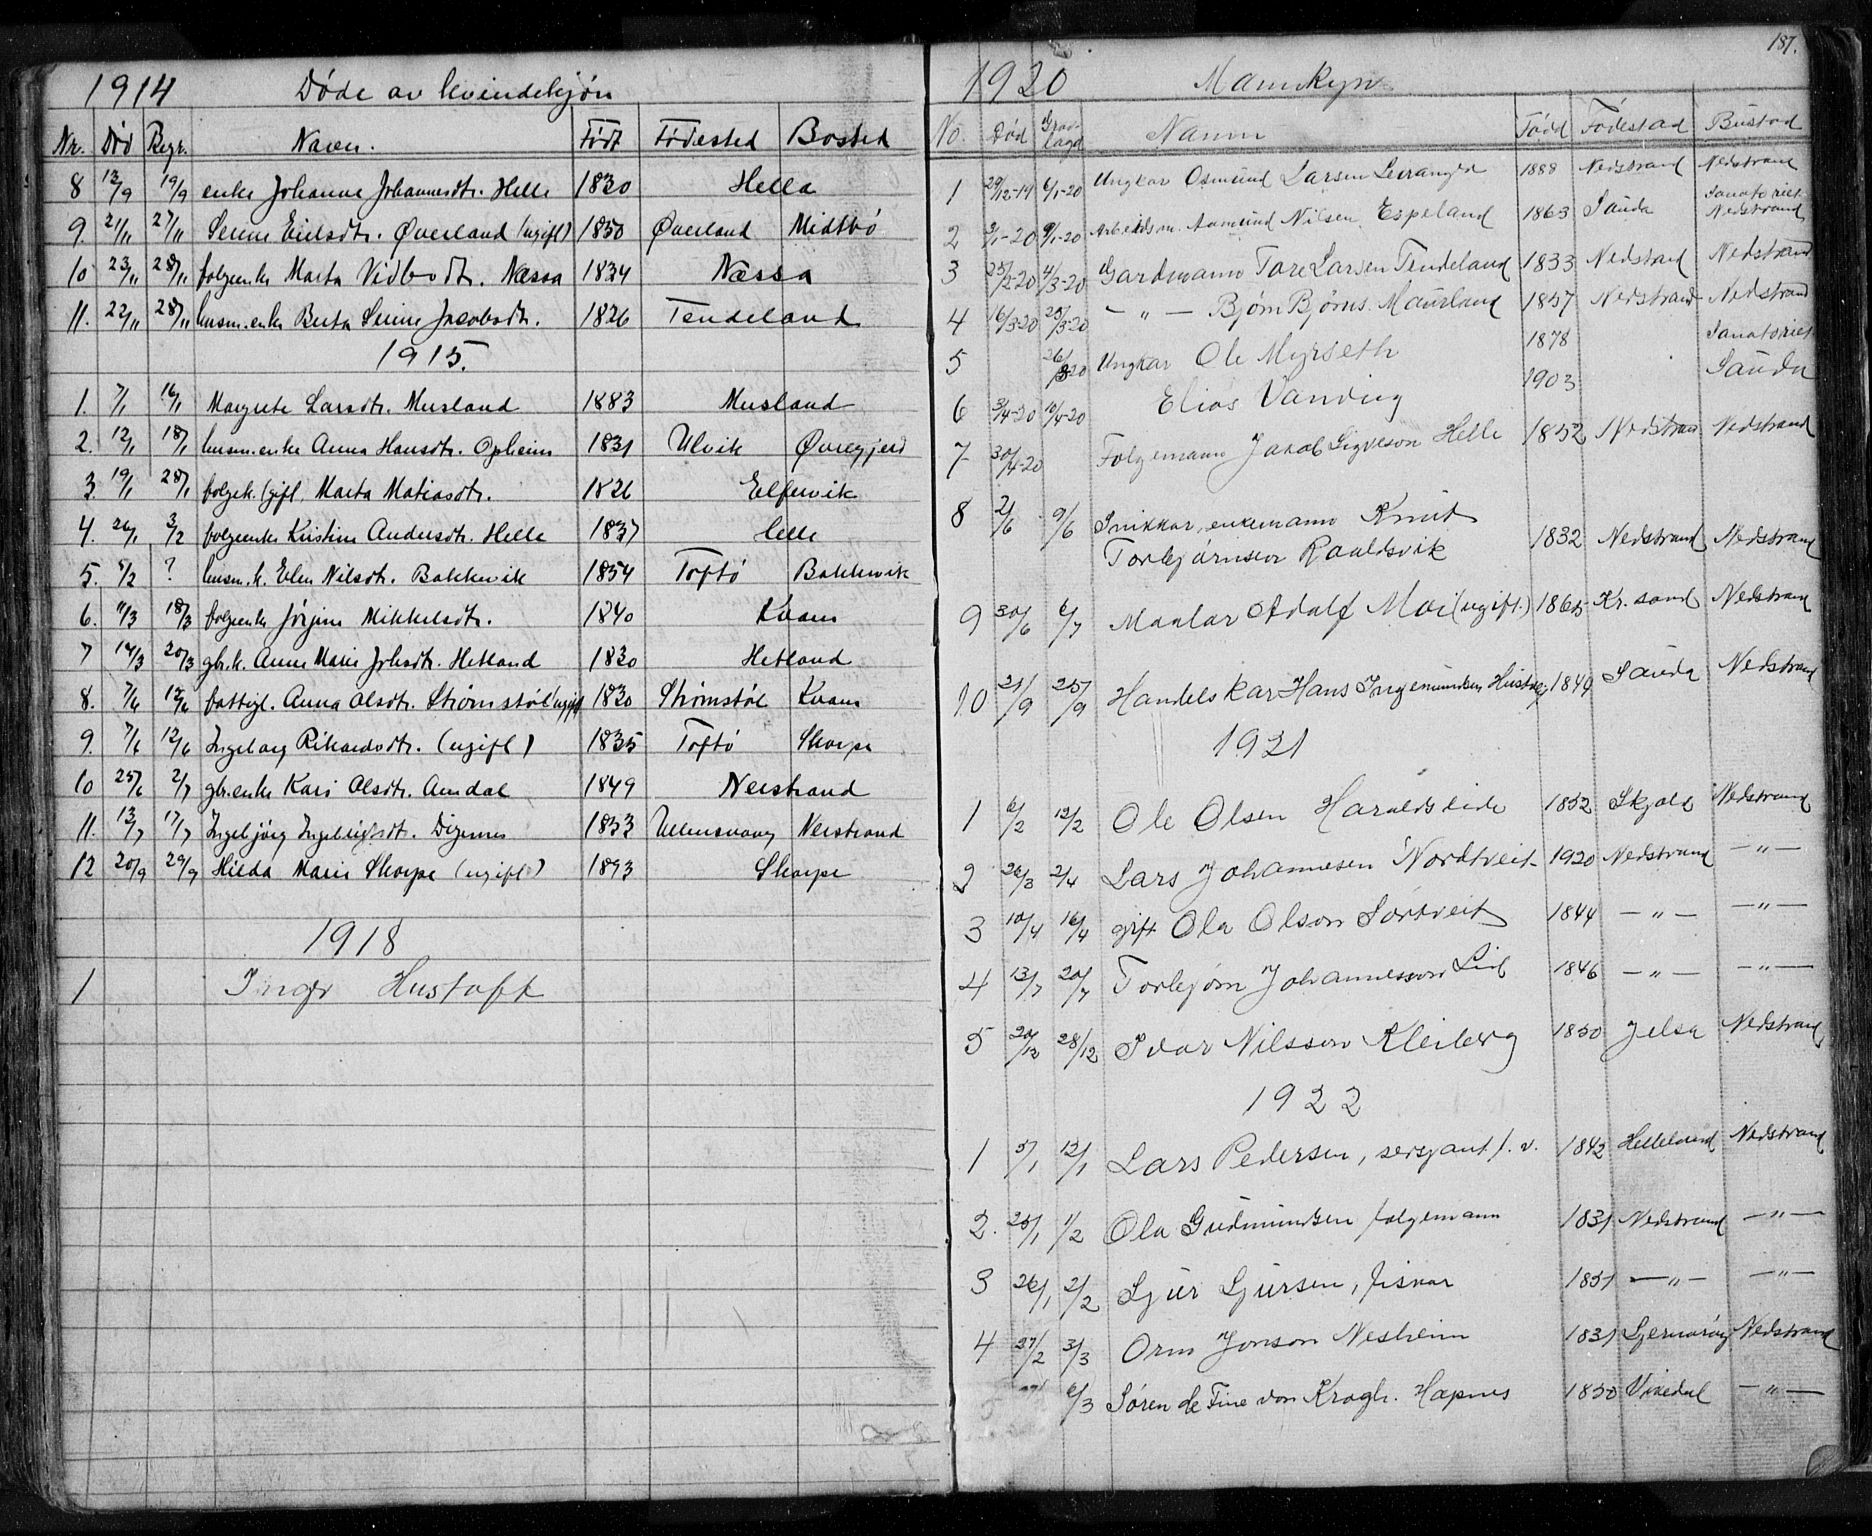 1914 Døde av kvindekjøn
Nr. Død Begr. Navn. Født Fødested Bosted
8 13/9 19/9 enke Johanne Johannesdtr. Helle 1830 Hella
9. 21/11 27/11 Serine Eielsdtr. Øverland (ugift) 1850 Øverland Midtbø
10 23/11 28/11 folgeenke Marta Vidbodtr. Næssa 1834 Næssa
11. 22/11 28/11 husm.enke Berta Serine Jacobsdtr. 1826 Tendeland
1915.
1. 7/1 16/1 Margrete Larsdtr. Musland 1883 Musland
2. 12/1 18/1 husm.enke Anna Hansdtr. Opheim 1831 Ulvik Øvregjerd
3. 19/1 28/1 folgek. (gift) Marta Matiasdtr. 1826 Elfervik
4. 26/1 3/2 folgeenke Kristine Andersdtr. Helle 1837 Helle
5. 5/2 ? husm.k. Elen Nilsdtr. Bakkevik 1854 Toftø Bakkevik
6. 11/3 18/3 folgeenke Jørgine Mikkelsdtr. 1840 Kvam
7 14/3 20/3 gbr.k. Anne Marie Johsdtr. Hetland 1830 Hetland
8. 7/4 12/4 fattigl. Anna Olsdtr. Strømstøl (ugift) 1830 Strømstøl Kvam
9. 7/6 12/6 Ingeborg Rikardsdtr. (ugift) 1835 Toftø Skorpe
10 25/6 2/7 gbr.enke Kari Olsdtr. Amdal 1849 Nerstrand
11. 13/7 17/7 Ingebjørg Ingebrigtsdtr. Digernes 1833 Ullensvang Nerstrand
12 20/9 29/9 Hilda Marie Skorpe (ugift) 1893 Skorpe
1918
1 Inger Hustoft
187.
1920 Mannkyn
No. Død Gravlagd Namn Fødd Fødestad Bustad
1 29/12-19 6/1-20 Ungkar Osmund Larsen Leiranger 1888 Nedstrand Nedstrand
Sanatoriet
2 2/1-20 9/1-20 Arbeidsm. Aamund Nilsen Espeland 1863 Sauda Nedstrand
3 25/2-20 4/3-20 Gardmann Tore Larsen Tendeland 1833 Nedstrand Nedstrand
4 16/3-20 25/3-20 — " — Bjørn Bjørns. Maurland 1857 Nedstrand Nedstrand
5 26/3-20 Ungkar Ole Myrseth 1878 Sanatoriet
6 3/4-20 10/4-20 Elias Vandvig 1903 Sauda
7 30/4-20 Folgemann Jakob Sigveson Helle 1852 Nedstran Nedstrand
8 2/6 9/6 Snikkar, enkemann Knut
Torbjørnson Roaldsvik 1832 Nedstrand Nedstrand
9 30/6 6/7 Maalar Adolf Moi (ugift.) 1865 Kr.sand Nedstrand
10 21/9 25/9 Handelskar Hans Ingemundsen Hustveg 1849 Sauda Nedstrand
1921
1 6/2 12/2 Ole Olsen Haraldseide 1852 Skjold Nedstrand
2 26/3 2/4 Lars Johannesen Nordtveit 1920 Nedstrand — " —
3 10/4 16/4 gift Ola Olson Sørtveit 1844 — " — — " —
4 13/7 20/7 Torbjørn Johannesson Lid 1846 — " — — " —
5 20/12 28/12 Ivar Nilsson Kleiberg 1850 Jelsa Nedstrand
1922
1 5/1 12/1 Lars Pedersen, sersjant f. v. 1842 Helleland Nedstrand
2. 25/1 1/2 Ola Gudmundsen folgemann 1831 Nedstrand — " —
3 26/1 2/2 Sjur Sjursen, fiskar 1851 — " — — " —
4 27/2 3/3 Orm Jonson Nesheim 1831 Sjernarøy Nedstrand
6/3 Søren de Fine von Krogh. Hapnes 1850 Vikedal — " —